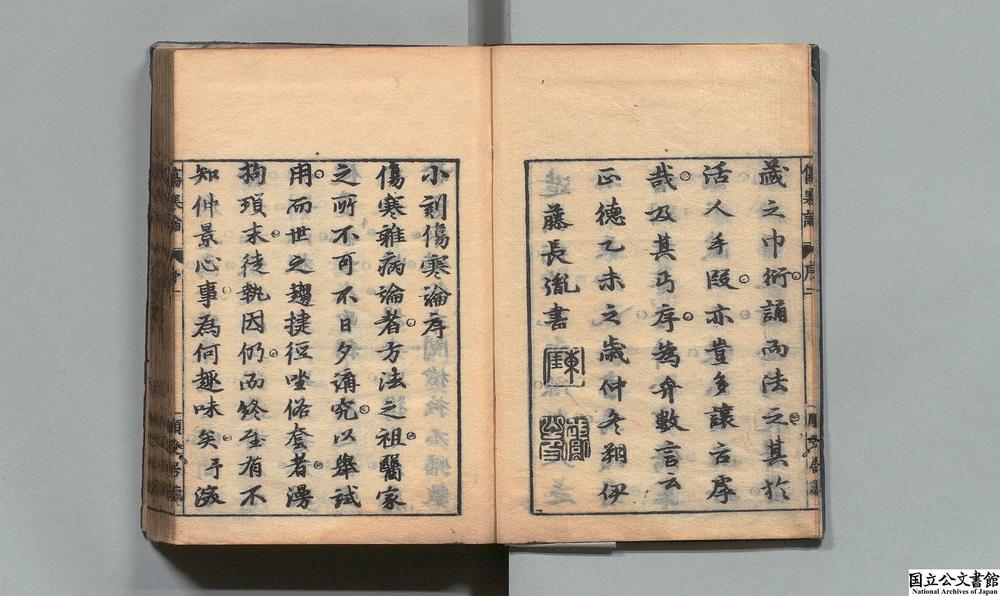 藏之巾衍誦而法之其於
活人手段亦豈多讓古序
哉及其丐序為弁數言云
正徳乙未之歳仲冬朔伊
藤長胤書
小刻傷寒論序
傷寒雜病論者方法之祖醫家
之所不可不日夕講究以舉試
用而世之趨捷徑坐俗套者漫
拘瑣末徒執因仍而終至有不
知仲景心事為何趣味矣予
傷寒論
国立公文書館
National Archives of Japan